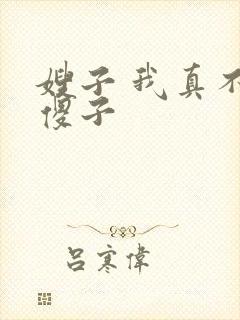 嫂子我真不
傻子
吕寒偉